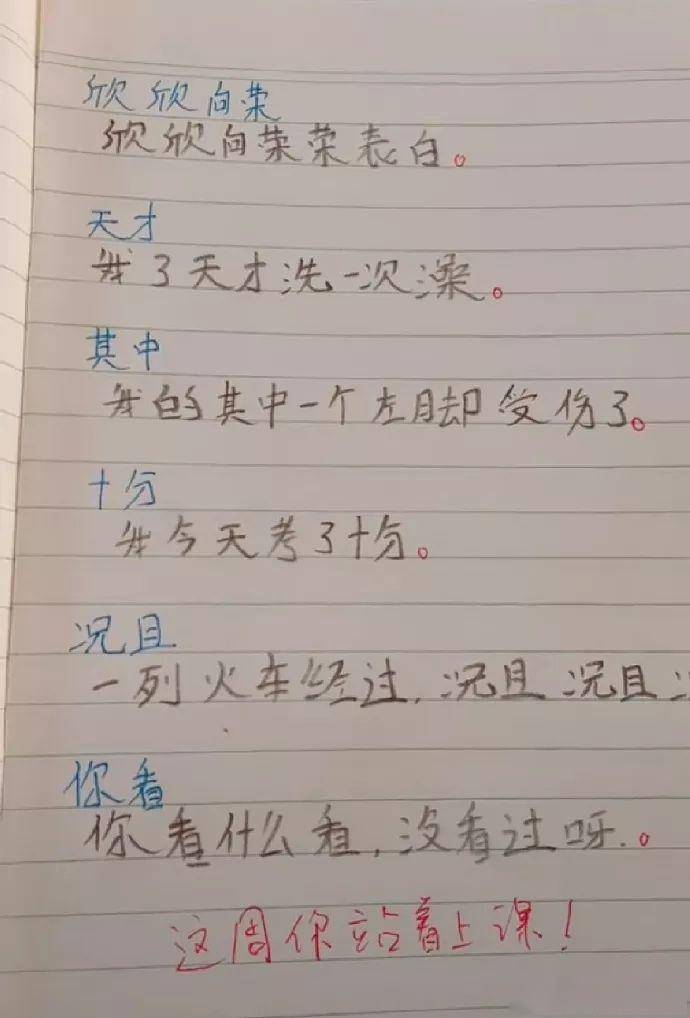 欣欣向荣
欣欣向荣荣表白。
天才
我3天才洗一次澡。
其中
我的其中一个左脚受伤了。
十分
我今天考了十分。
况且
一列火车经过,况且 况且
你看
你看什么看,没看过呀。
这周你站着上课!